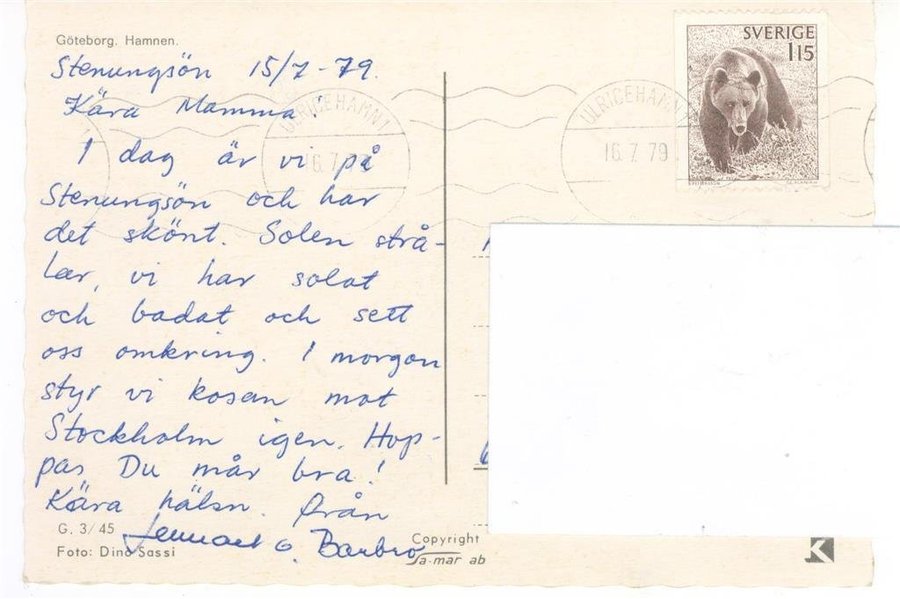 Göteborg. Hamnen.
Stenungsön 15/7-79.
Kära Mamma!
I dag är vi på
Stenungsön och har
det skönt. Solen strå-
lar, vi har solat
och badat och sett
oss omkring. I morgon
styr vi kosan mot
Stockholm igen. Hop-
pas Du mår bra!
Kära hälsn. från
Lennart o. Barbro
G. 3/45
Foto: Dino Sassi
Copyright
Sa-mar ab
K
SVERIGE
115
ULRICEHAMN 1
16.7.79
ULRICEHAMN 1
16.7.79